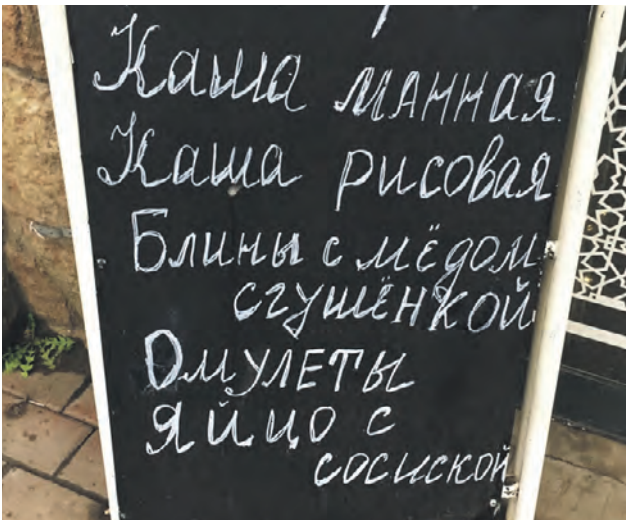 Каша манная
Каша рисовая
Блины с мёдом
сгушёнкой
Омулеты
яйцо с
сосиской